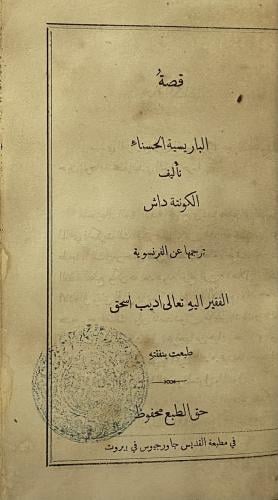 قصةُ
الباريسية الحسناء
تأليف
الكونتة داش
ترجمها عن الفرنسوية
الفقير اليهِ تعالى اديب اسحق
طبعت بنفقتهِ
حق الطبع محفوظ
في مطبعة القديس جاورجيوس في بيروت